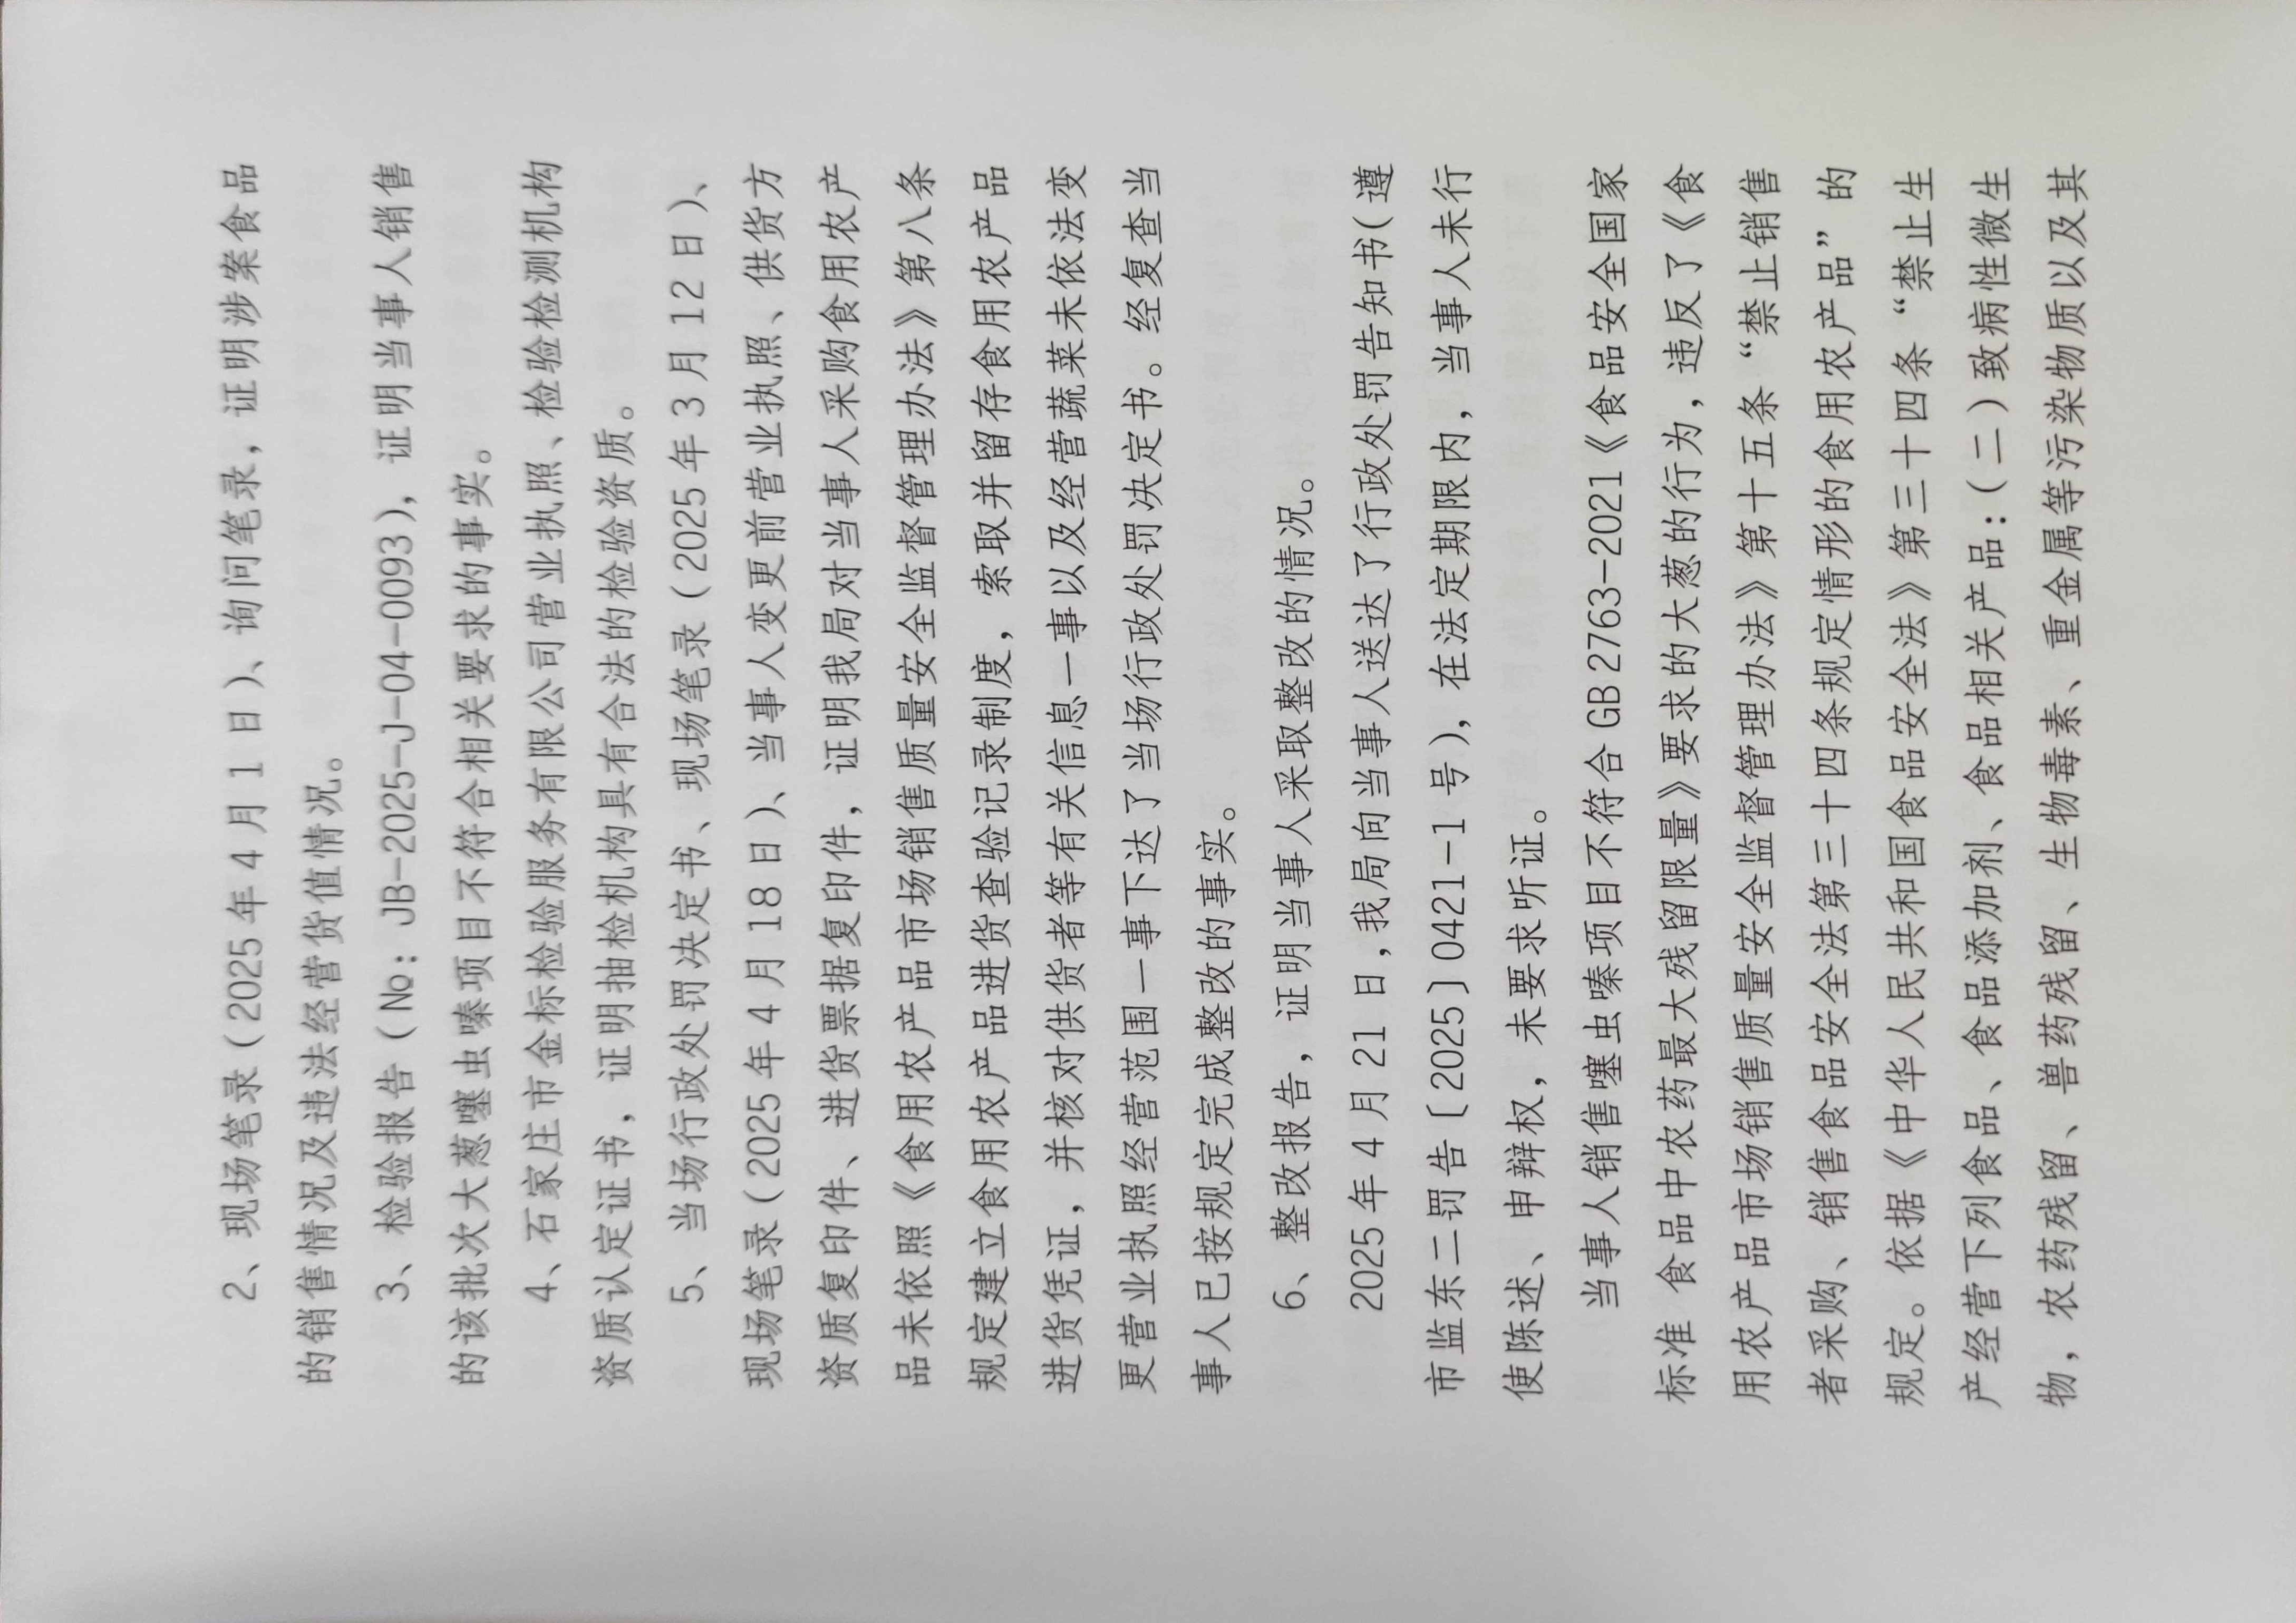 2、现场笔录（2025年4月1日）、询问笔录，证明涉案食品
的销售情况及违法经营货值情况。
3、检验报告（№：JB-2025-J-04-0093），证明当事人销售
的该批次大葱噻虫嗪项目不符合相关要求的事实。
4、石家庄市金标检验服务有限公司营业执照、检验检测机构
资质认定证书，证明抽检机构具有合法的检验资质。
5、当场行政处罚决定书、现场笔录（2025年3月12日）、
现场笔录（2025年4月18日）、当事人变更前营业执照、供货方
资质复印件、进货票据复印件，证明我局对当事人采购食用农产
品未依照《食用农产品市场销售质量安全监督管理办法》第八条
规定建立食用农产品进货查验记录制度，索取并留存食用农产品
进货凭证，并核对供货者等有关信息一事以及经营蔬菜未依法变
更营业执照经营范围一事下达了当场行政处罚决定书。经复查当
事人已按规定完成整改的事实。
6、整改报告，证明当事人采取整改的情况。
2025年4月21日，我局向当事人送达了行政处罚告知书（遵
市监东二罚告〔2025〕0421-1号），在法定期限内，当事人未行
使陈述、申辩权，未要求听证。
当事人销售噻虫嗪项目不符合GB 2763-2021《食品安全国家
标准 食品中农药最大残留限量》要求的大葱的行为，违反了《食
用农产品市场销售质量安全监督管理办法》第十五条“禁止销售
者采购、销售食品安全法第三十四条规定情形的食用农产品”的
规定。依据《中华人民共和国食品安全法》第三十四条“禁止生
产经营下列食品、食品添加剂、食品相关产品：（二）致病性微生
物，农药残留、兽药残留、生物毒素、重金属等污染物质以及其